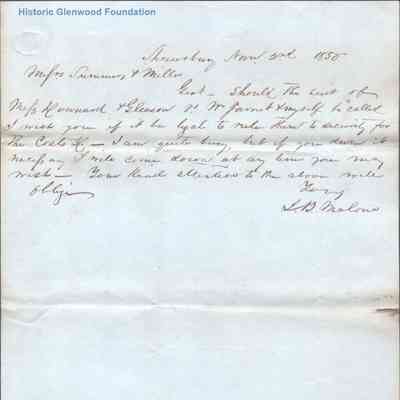 Historic Glenwood Foundation
Shrewsbury Novr 2nd 1850
Messrs Summers & Miller
Gent - Should the suit of
Mess Howard & Gleason vs Wm Garret & myself be called
I wish you if it be legal to rule them to security for
the Costs &c - I am quite busy, but if you deem it
necessary I will come down at any time you may
wish - Your kind attention to the above will
oblige
L B Malone